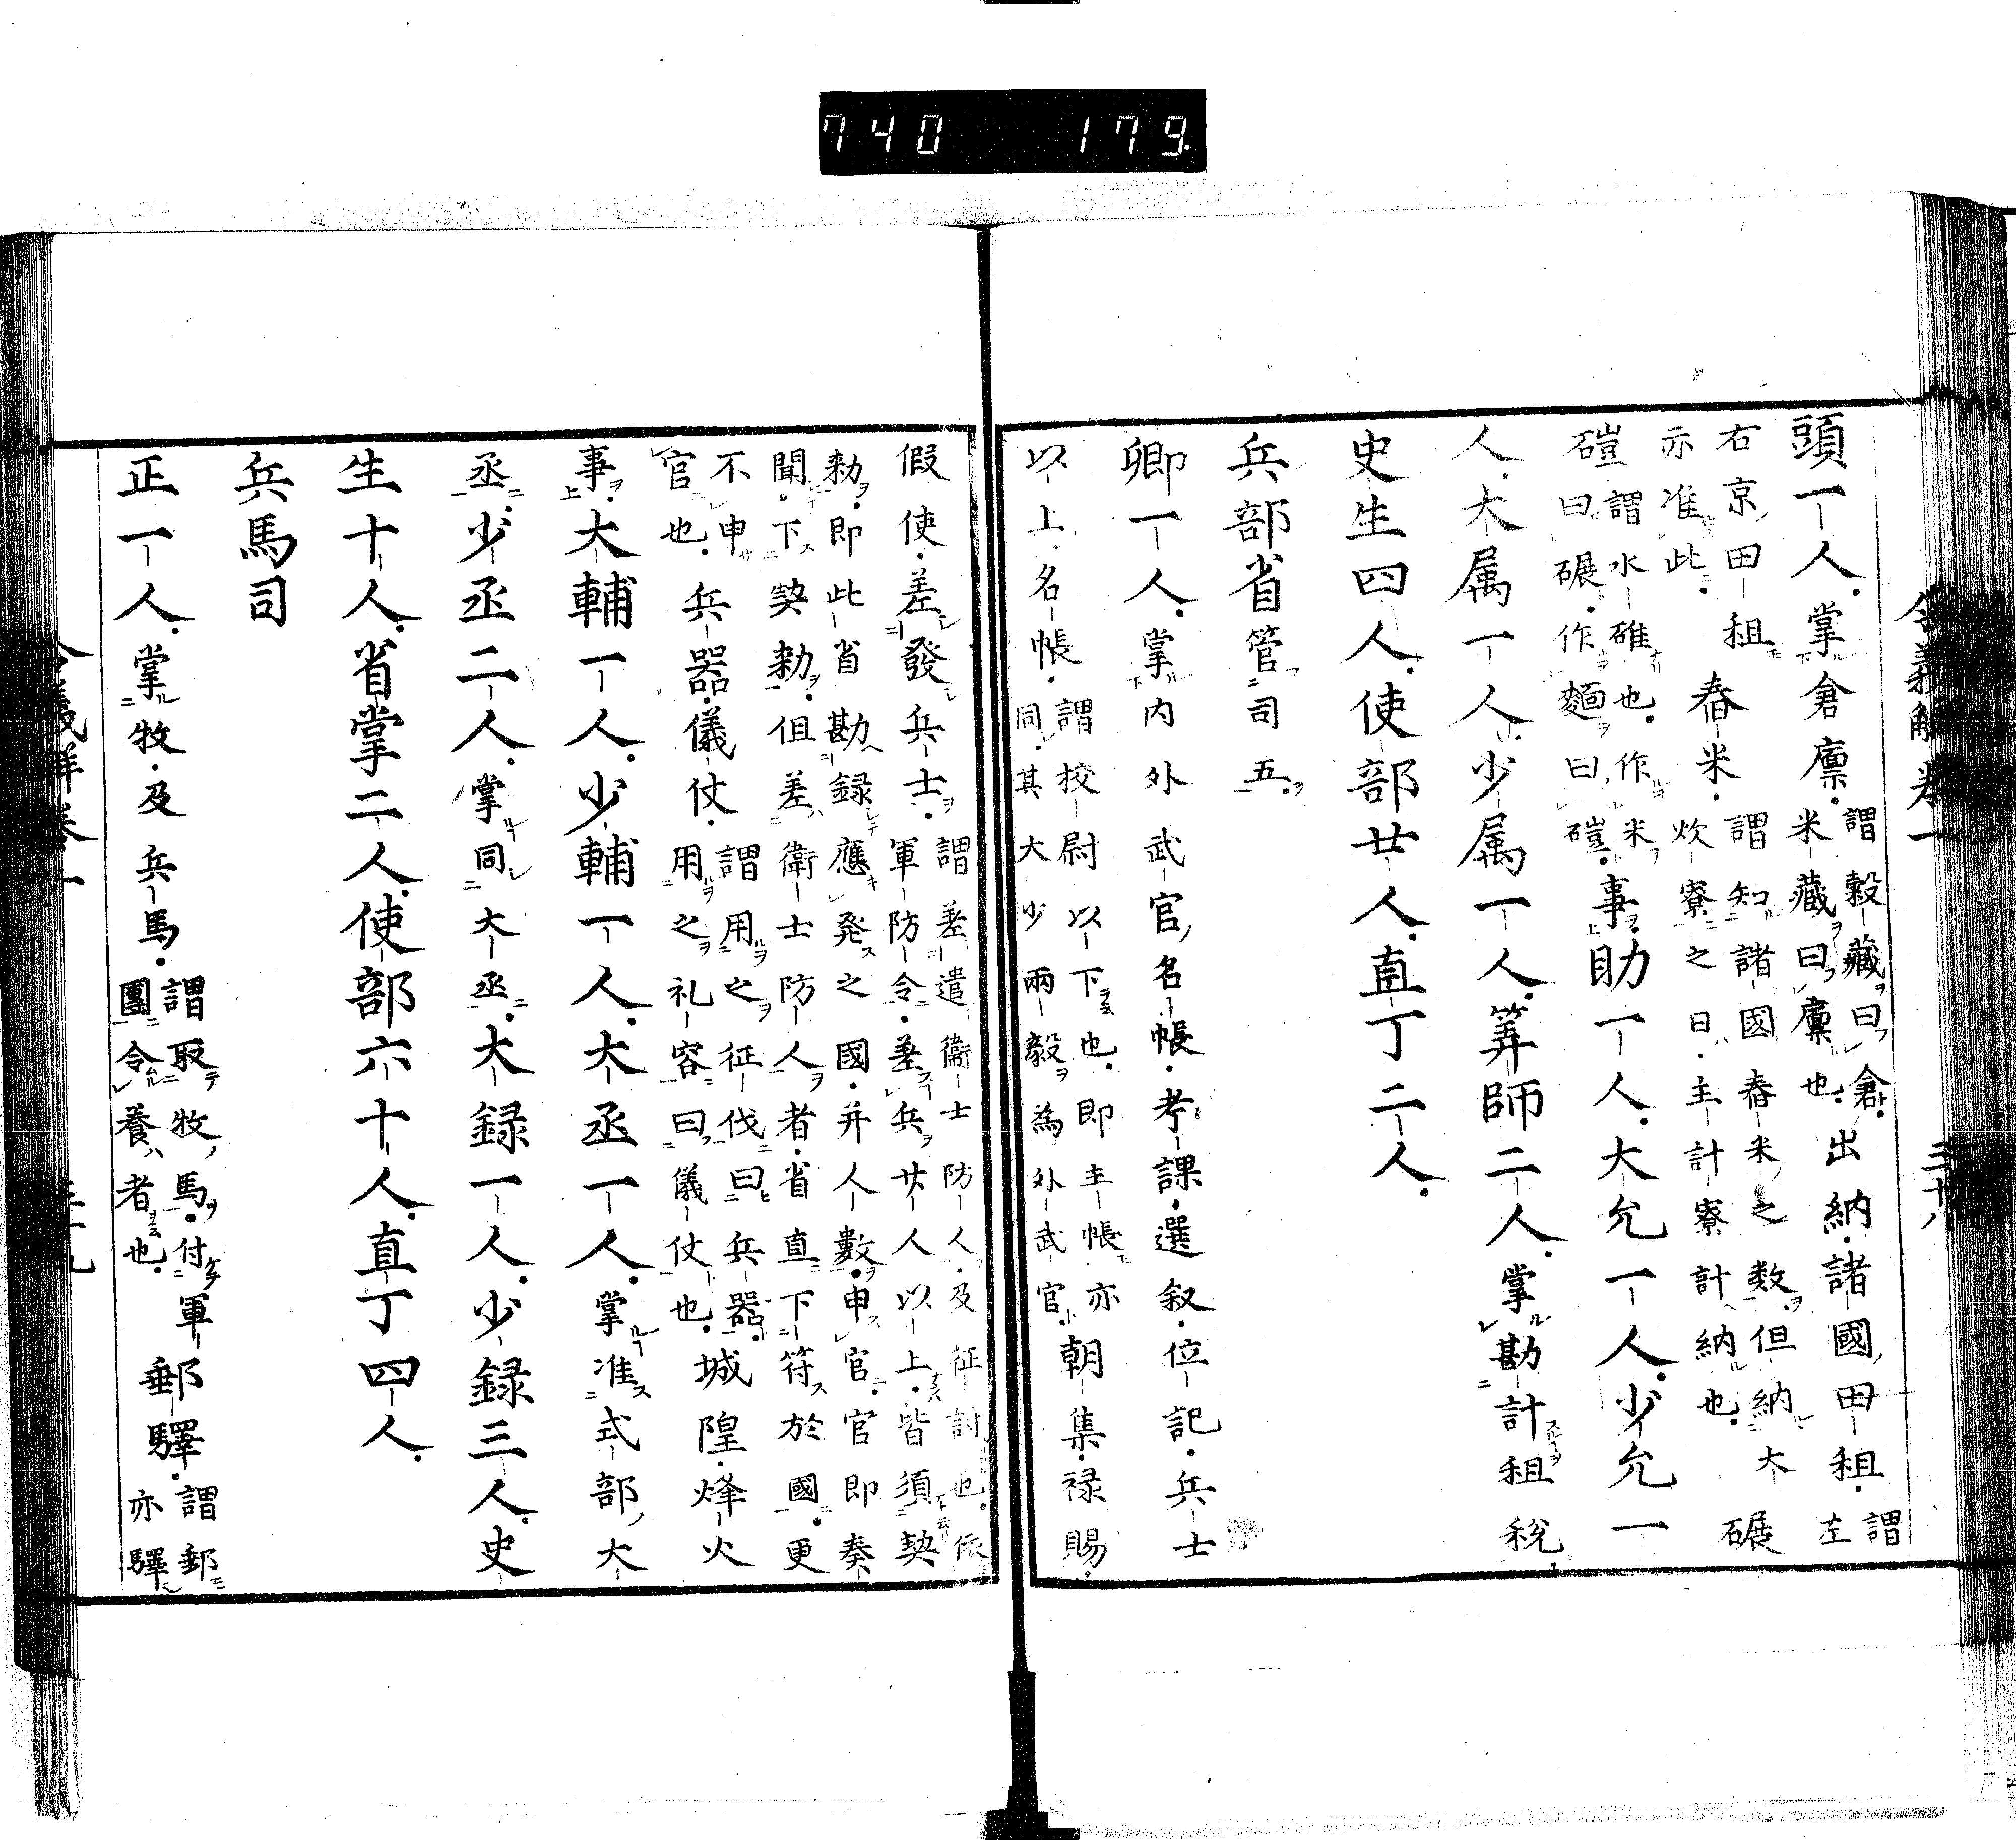 740 179
頭一人。掌倉廩。謂穀藏曰倉。米藏曰廩也。出納。諸國田租。謂左
右京田租亦准此。舂米。謂知諸國舂米之数。但納大炊寮之日。主計寮計納也。碾
磑謂水碓也。作米曰碾。作麵曰磑。事。助一人。大允一人。少允一
人。大属一人。少属一人。筭師二人。掌勘計租税
史生四人。使部廿人。直丁二人。
兵部省管司五。
卿一人。掌内外武官名帳。考課。選叙。位記。兵士
以上名帳。謂校尉以下也。即主帳亦同。其大少兩毅為外武官。朝集。禄賜。
假使。差發兵士。謂差遣衞士防人。及征討也。依軍防令。差兵廿人以上。皆須契
勅。即此省勘録應発之國。并人數。申官。官即奏聞。下契勅。但差衛士防人者。省直下符於國。更
不申官也。兵器。儀仗。謂用之征伐曰兵器。用之礼容曰儀仗也。城隍。烽火
事。大輔一人。少輔一人。大丞一人。掌准式部大
丞。少丞二人。掌同大丞。大録一人。少録三人。史
生十人。省掌二人。使部六十人。直丁四人。
兵馬司
正一人。掌牧。及兵馬。謂取牧馬。付軍團令養者也。郵驛。謂郵亦驛
令義解卷一 三十八